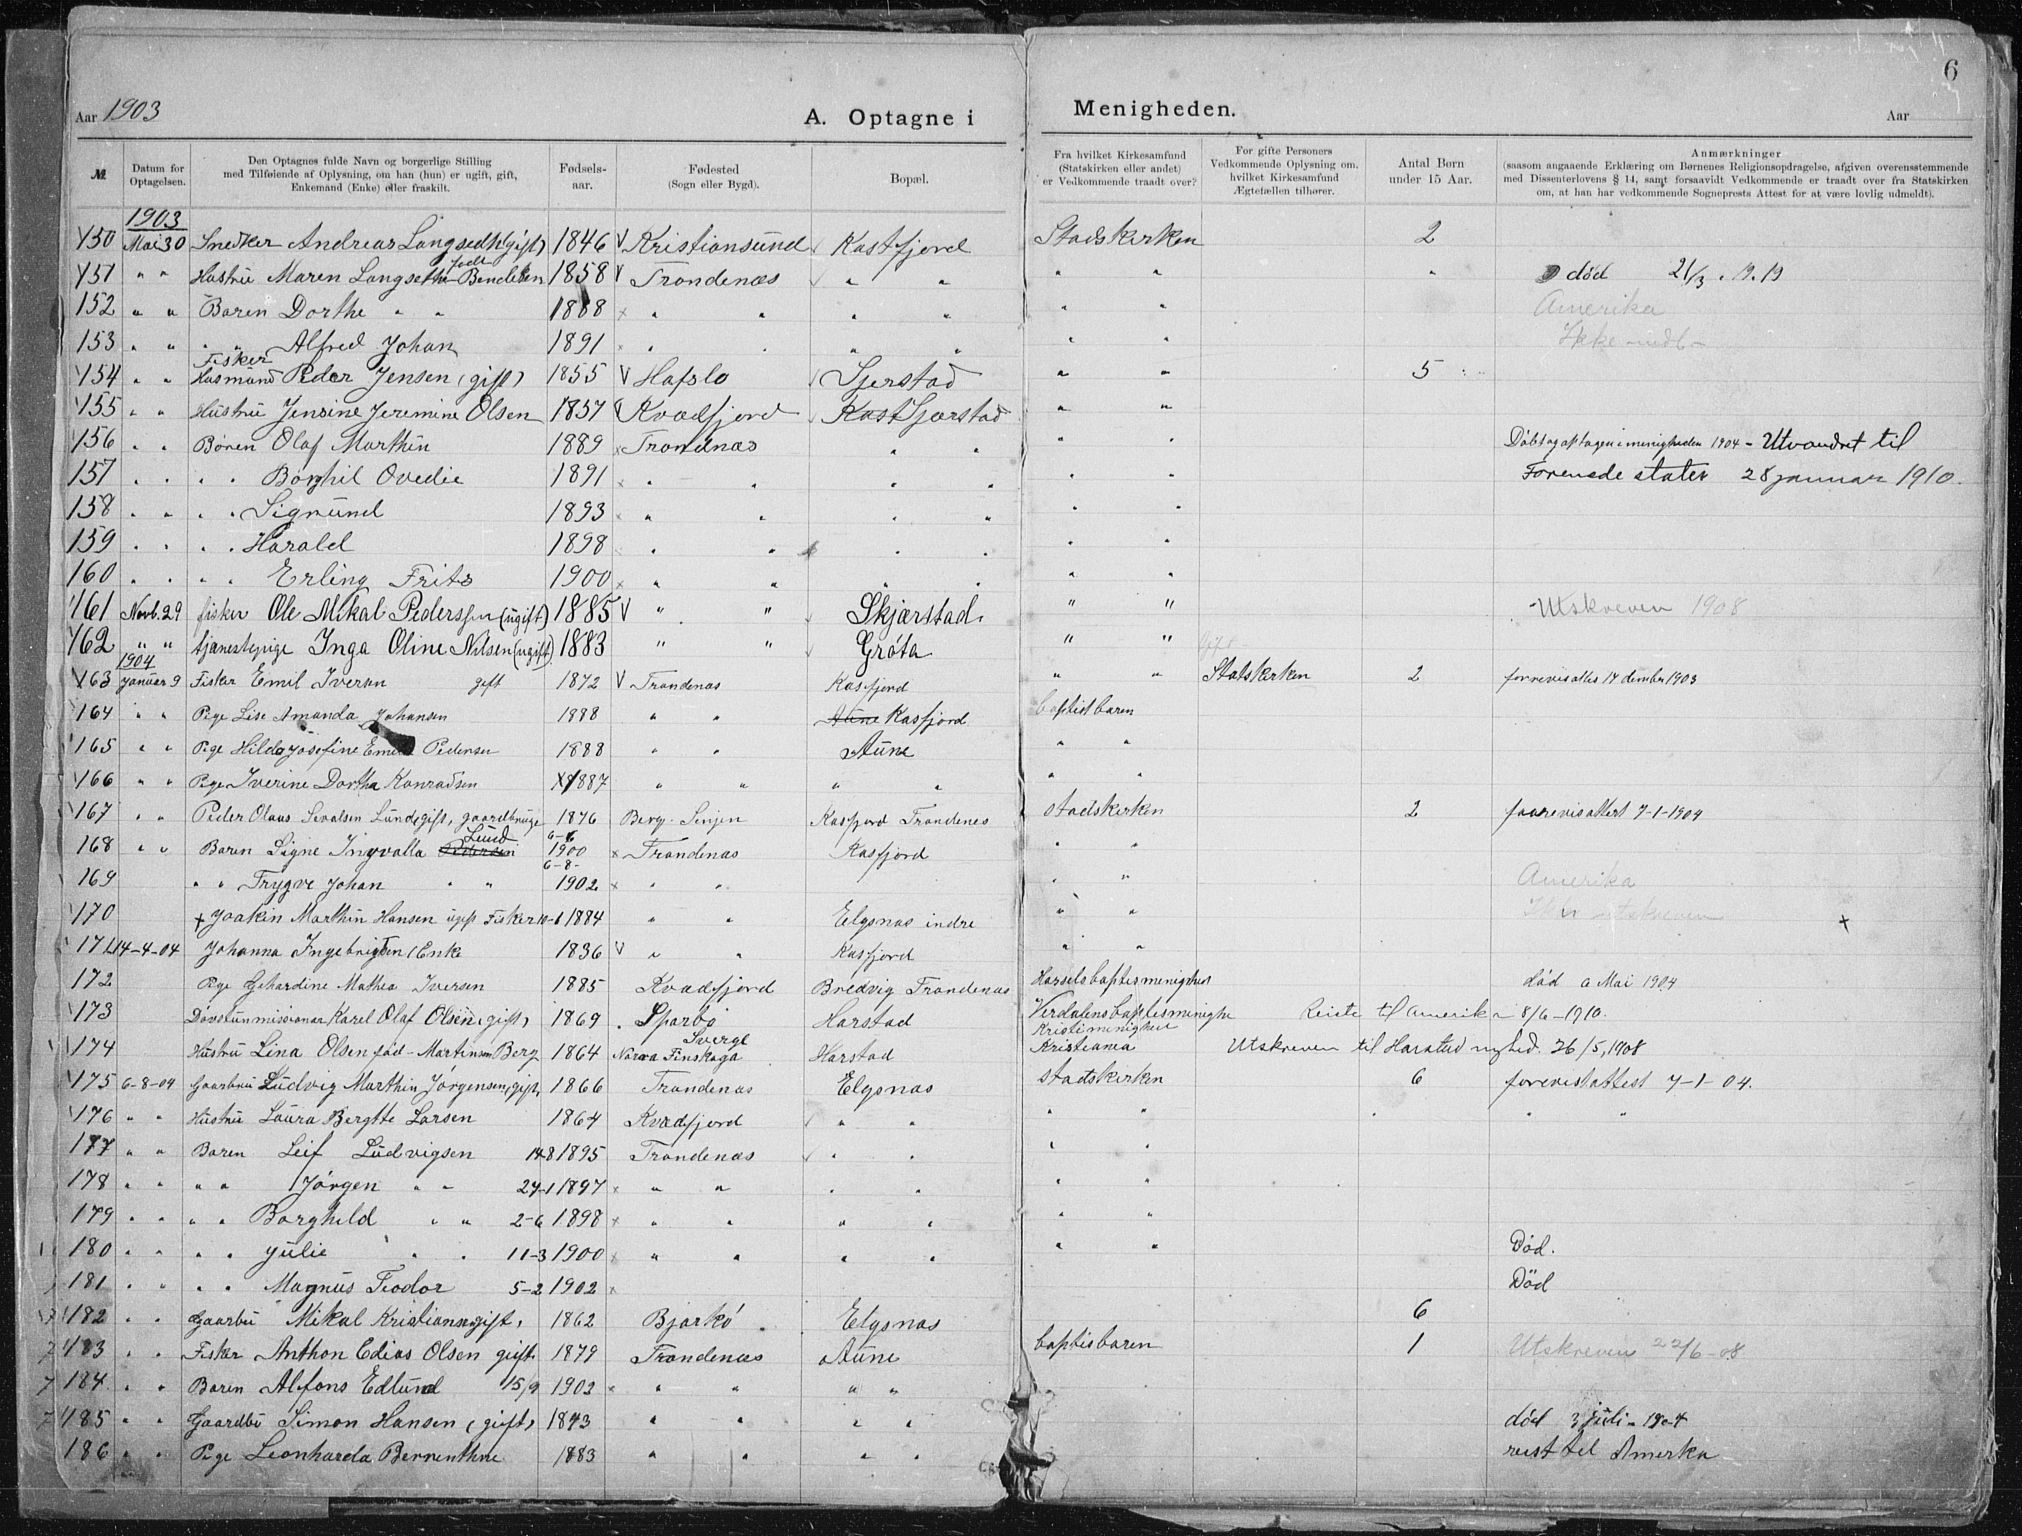 6
Aar 1903 A. Optagne i Menigheden. Aar
№ Datum for Optagelsen. Den Optagnes fulde Navn og borgerlige Stilling med Tilføiende af Oplysning, om han (hun) er ugift, gift, Enkemand (Enke) eller fraskilt. Fødsels-aar. Fødested (Sogn eller Bygd). Bopæl. Fra hvilket Kirkesamfund (Statskirken eller andet) er Vedkommende traadt over? For gifte Personers Vedkommende Oplysning om, hvilket Kirkesamfund Ægtefællen tilhører. Antal Børn under 15 Aar. Anmærkninger (saasom angaaende Erklæring om Børnenes Religionsopdragelse, afgiven overensstemmende med Dissenterlovens § 14, samt forsaavidt Vedkommende er traadt over fra Statskirken om, at han har vedkommende Sogneprests Attest for at være lovlig udmeldt).
1903
150 Mai 30 Snedker Andreas Langsedth (gift) 1846 V Kristiansund Kastfjord Stadskirken 2
151 " " Hustru Maren Langseth født Bendiksen 1858 V Trondenæs " " " " " død 21/3 . 19.19
152 " " Baren Dorthe " " 1888 x " " " " " " Amerika
153 " " " " Alfred Johan 1891 x " " " " " " Ikke indb -
154 " " Fisker Husmand Peder Jensen (gift) 1855 V Hafslo Sjerstad " " 5
155 " " Hustru Jensine Jeremine Olsen 1857 V Kvædfjord Kast Sjærstad " "
156 " " Børen Olaf Marthin 1889 x Trondenæs " " " " Døbt og optagen i menigheden 1904 - Utvandret til
157 " " " " Borghil Ovedie 1891 x " " " " " " Forenede stater 28 januar 1910.
158 " " " " Sigmund 1893 x " " " " " "
159 " " " " Harald 1898 " " " " " "
160 " " " " Erling Frits 1900 x " " " " " "
161 Novb. 29 fisker Ole Mikal Pederssen (ugift) 1885 V " " Skjærstad. " " Utskreven 1908
162 " " tjenestepige Inga Oline Nilsen (ugift) 1883 " " Grøta " " gift
1904
163 Januar 9 Fisker Emil Iversen gift 1872 V Trondenas Kasfjord " " Statskirken 2 forevis attes 17 dember 1903
164 " " Pige Lise Amanda Johansen 1888 " " Aune Kasfjord baptistbaren
165 " " Pige Hilda Josefine Emelie Pedersen 1888 " " Aune " "
166 " " Pige Iverine Dorthea Konradsen 1887 " " " " " "
167 " " Peder Olaus Sivalsen Lund gift, gaardbruge 1876 Berg. Sinjen Kasfjord Trondenes stadskirken 2 foorevis attest 7-1-1904
168 " " Baren Signe Ingvalla Pedersen Lund 6-6 1900 x Trondenas Kasfjord " "
169 " " Trygve Johan " " 6-8- 1902 x " " " " Amerika
170 + Joakin Marthin Hansen ugift Fisker 10-1 1884 " " Elgsnas indre " " Ikke utskreven +
171 14-4-04 Johanna Ingebrigtsen (Enke 1836 V " " Kasfjord " "
172 Pige Gehardine Mathea Iversen 1885 Kvædfjord Bredvig Trondenas Harselsbaptesmenighed død a Mai 1904
173 Døvstummisionar Karel Olaf Olsen (gift) 1869 . Sparbo Harstad Verdalens baptesminighe Reiste til Amerika 8/6-1910.
174 Hustru Lina Olsen fød - Martinsen Berg 1864 Norra Finskaga Sverge Harstad Kristimenighed Kristiania Utskreven til Harstad mghed. 26/5, 1908
175 6-8-04 Gaarbru Ludvig Marthin Jørgensen, gift, 1866 Trondenas Elgsnas stadskirken 6 forevist attest 7-1-04.
176 " " Hustru Laura Bergtte Larsen 1864 Kvædfjord " " " " " " "
177 " " Baren Leif Ludvigsen 14-8 1895 Trondenæs " " " "
178 " " " " Jørgen " " 24-1 1897 x " " " " " "
179 " " " " Borghild " " 2-6 1898 x " " " " " "
180 " " " " Julie " " 11-3 1900 x " " " " " " Død.
181 " " " " Magnus Teodor 5-2 1902 x Død
182 " " Gaarbru Mikal Kristiansen gift, 1862 Bjarkø Elgsnas 6
183 " " Fisker Anthon Edias Olsen gift 1879 Trondenæs Aune baptisbaren 1 Utskreven 22/6-08
184 " " Baren Alfons Edlund 15/9 1902 " " " "
185 " " Gaardbr Simon Hansen (gift) 1843 " " " " død 3 juli - 1904
186 " " Pige Leonharda Bernenthine 1883 " " " " reist til Amerka